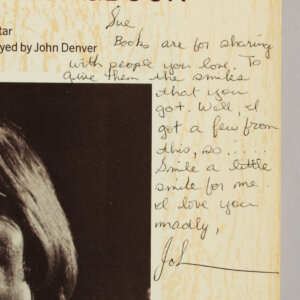 tar
yed by John Denver
Sue
Books are for sharing
with people you love. To
give them the smiles
that you
got. Well, I
got a few from
this, so.....
Smile a little
smile for me.
I love you
madly,